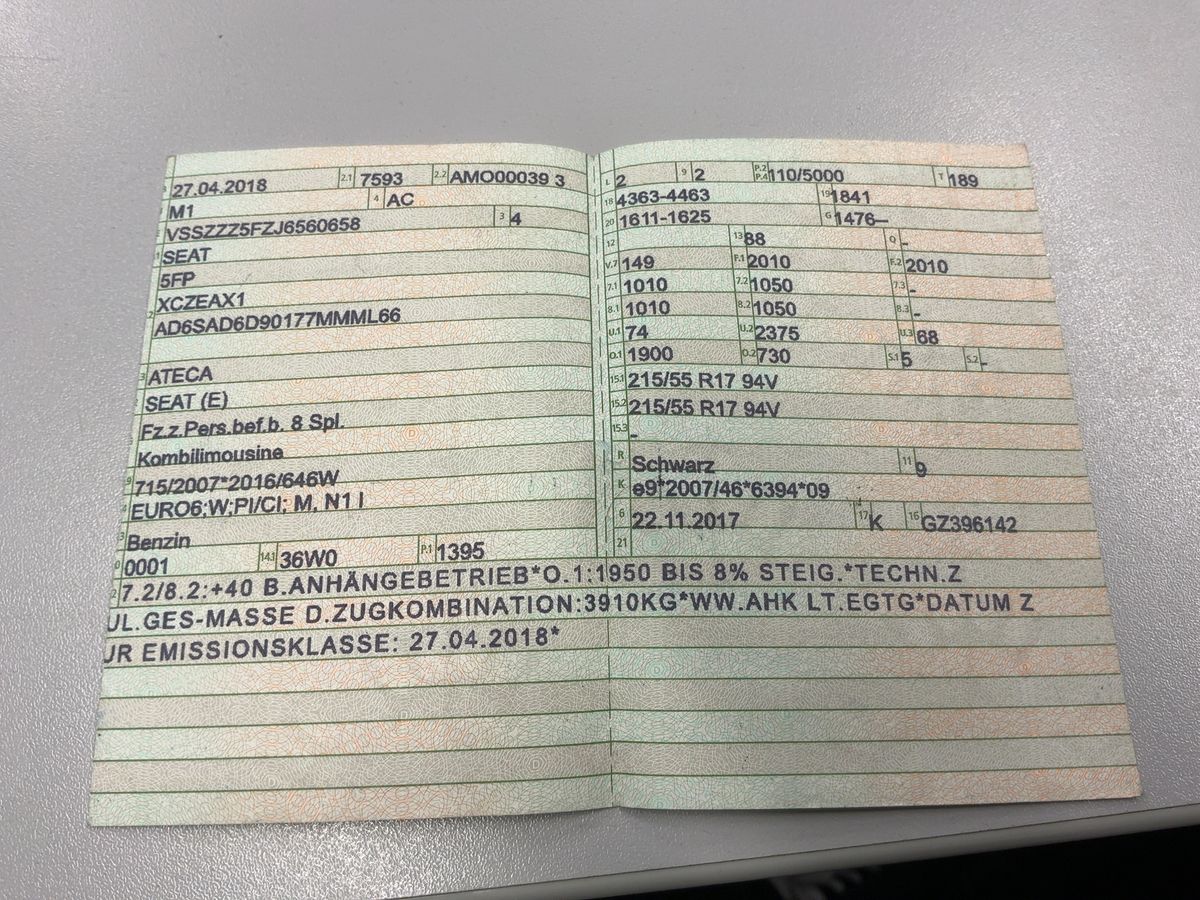 27.04.2018 2.1 7593 2.2 AMO00039 3
M1 4 AC
VSSZZZ5FZJ6560658 3 4
SEAT
5FP
XCZEAX1
AD6SAD6D90177MMML66
ATECA
SEAT (E)
Fz.z.Pers.bef.b. 8 Spl.
Kombilimousine
715/2007*2016/646W
EURO6;W;PI/CI; M, N1 I
Benzin
0001 14.1 36W0 P.1 1395
L 2 9 2 P.2 P.4 110/5000 T 189
18 4363-4463 19 1841
20 1611-1625 G 1476–
12 13 88 Q -
V.7 149 F.1 2010 F.2 2010
7.1 1010 7.2 1050 7.3 -
8.1 1010 8.2 1050 8.3 -
U.1 74 U.2 2375 U.3 68
O.1 1900 O.2 730 S.1 5 S.2 -
15.1 215/55 R17 94V
15.2 215/55 R17 94V
15.3 -
R Schwarz 11 9
K e9*2007/46*6394*09
6 22.11.2017 17 K 16 GZ396142
21
7.2/8.2:+40 B.ANHÄNGEBETRIEB*O.1:1950 BIS 8% STEIG.*TECHN.Z
UL.GES-MASSE D.ZUGKOMBINATION:3910KG*WW.AHK LT.EGTG*DATUM Z
UR EMISSIONSKLASSE: 27.04.2018*